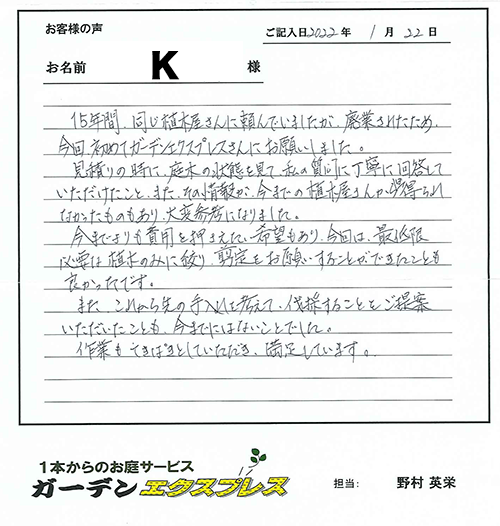 お客様の声
ご記入日2022年 1月22日
お名前 K 様
15年間、同じ植木屋さんに頼んでいましたが、廃業されたため、
今回初めてガーデンエクスプレスさんにお願いしました。
見積りの時に、庭木の状態を見て、私の質問に丁寧に回答して
いただけたこと、また、その情報が、今までの植木屋さんから得られ
なかったものもあり、大変参考になりました。
今までよりも費用を押さえたい希望もあり、今回は、最低限
必要な植木のみに絞り、剪定をお願いすることができたことも
良かったです。
また、これから先の手入れを考えて、伐採することをご提案
いただいたことも、今までにはないことでした。
作業もてきぱきとしていただき、満足しています。
1本からのお庭サービス
ガーデンエクスプレス
担当: 野村 英栄